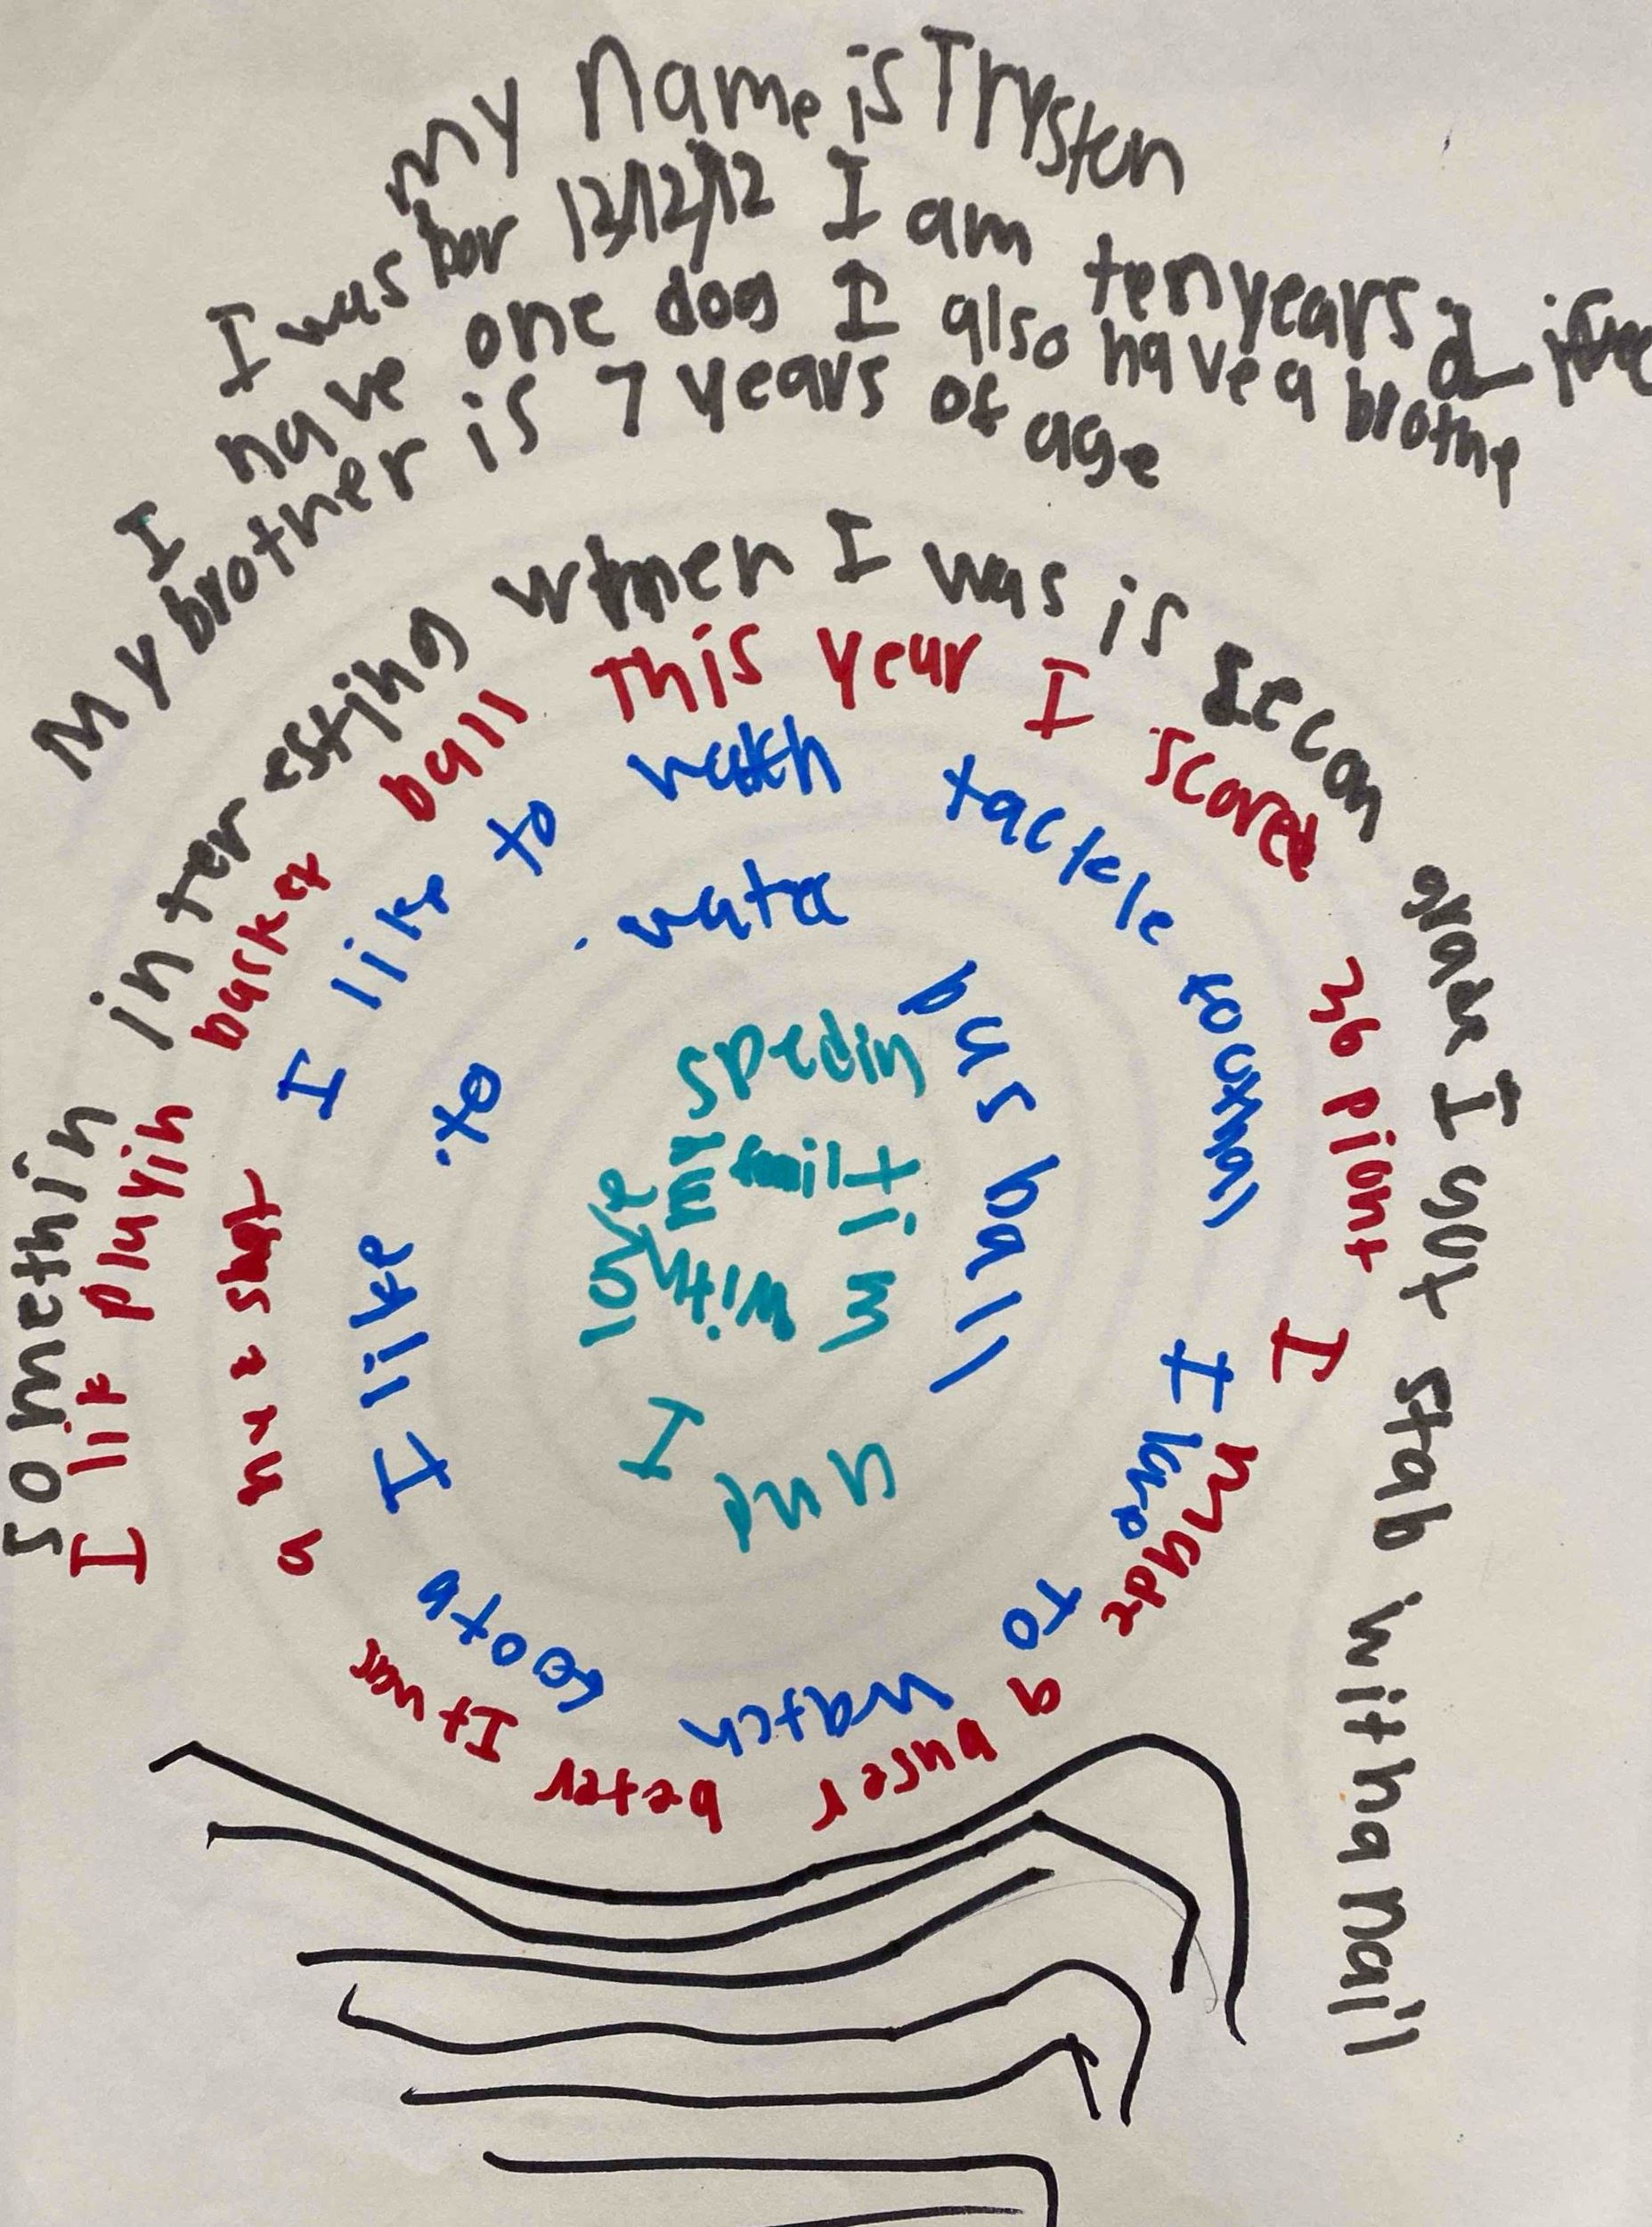 My Name is Trysten
I was bor 12/12/12 I am ten years
I have one dog I also have a brothe
My brother is 7 years of age
somethin interesting when I was is secon grade I got stab with a nail
I lik playin basket ball this year I scored 36 piont I made a buser beter It was a hx shot
I like to wach tackle football I love to watch foota I like to watce bas ball
and I love spedin tim with m family